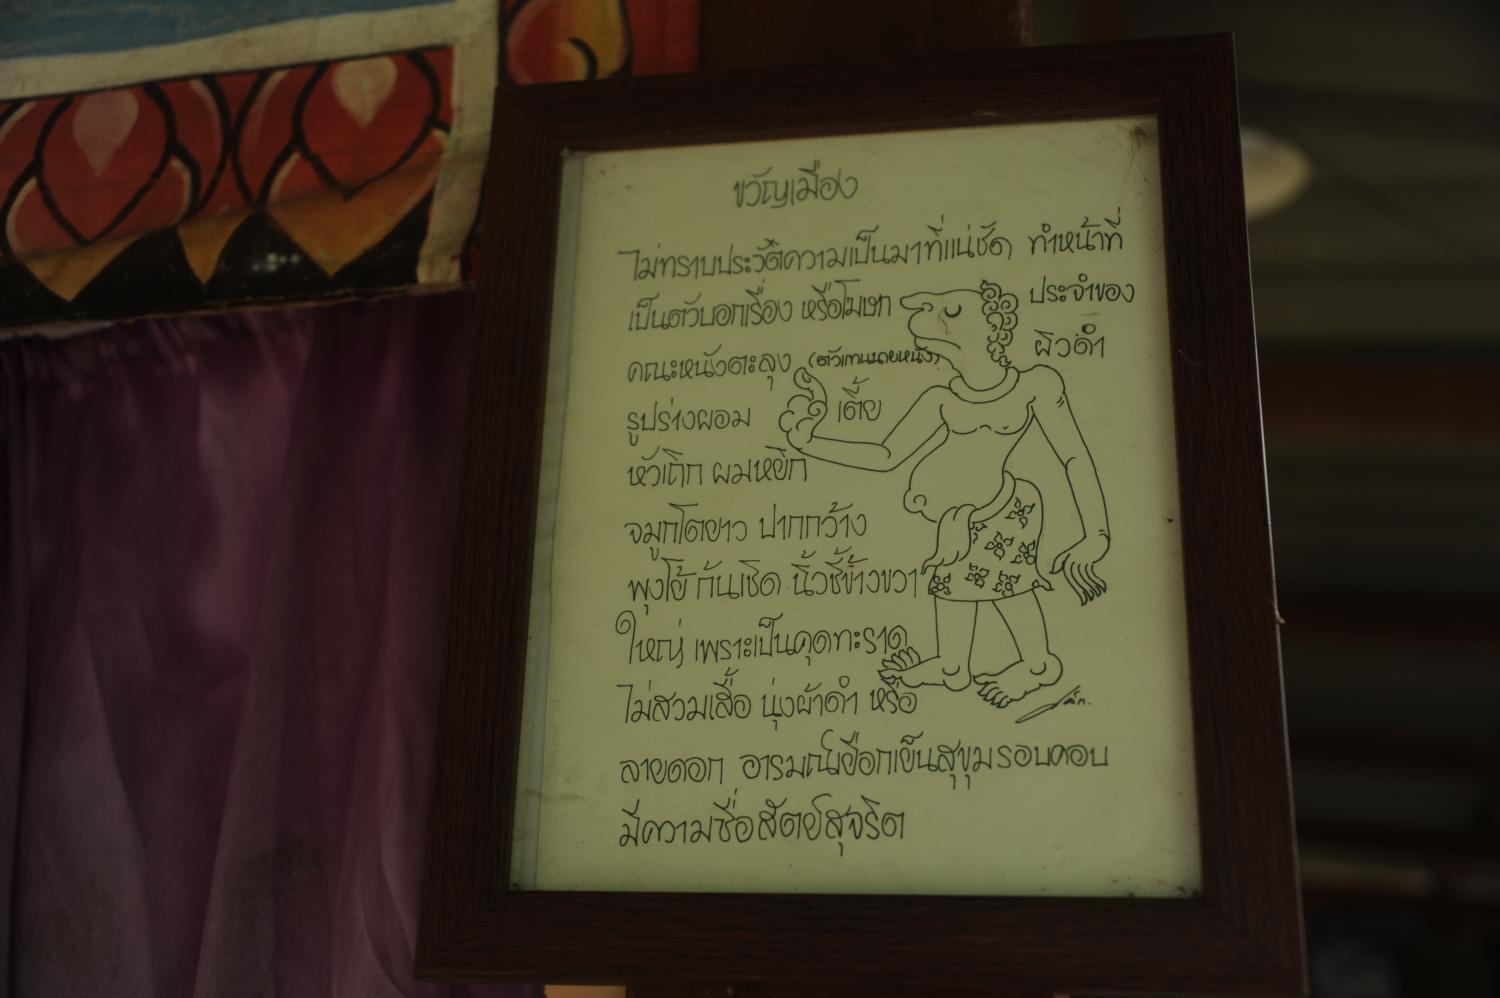 ขวัญเมือง
ไม่ทราบประวัติความเป็นมาที่แน่ชัด ทำหน้าที่
เป็นตัวบอกเรื่อง หรือโฆษก ประจำของ
คณะหนังตะลุง (ตัวแทนนายหนัง) ผิวดำ
รูปร่างผอม เตี้ย
หัวเถิก ผมหยิก
จมูกโตยาว ปากกว้าง
พุงโย้ ก้นเชิด นิ้วชี้ข้างขวา
ใหญ่ เพราะเป็นคุดทะราด
ไม่สวมเสื้อ นุ่งผ้าดำ หรือ
ลายดอก อารมณ์เยือกเย็นสุขุมรอบคอบ
มีความซื่อสัตย์สุจริต